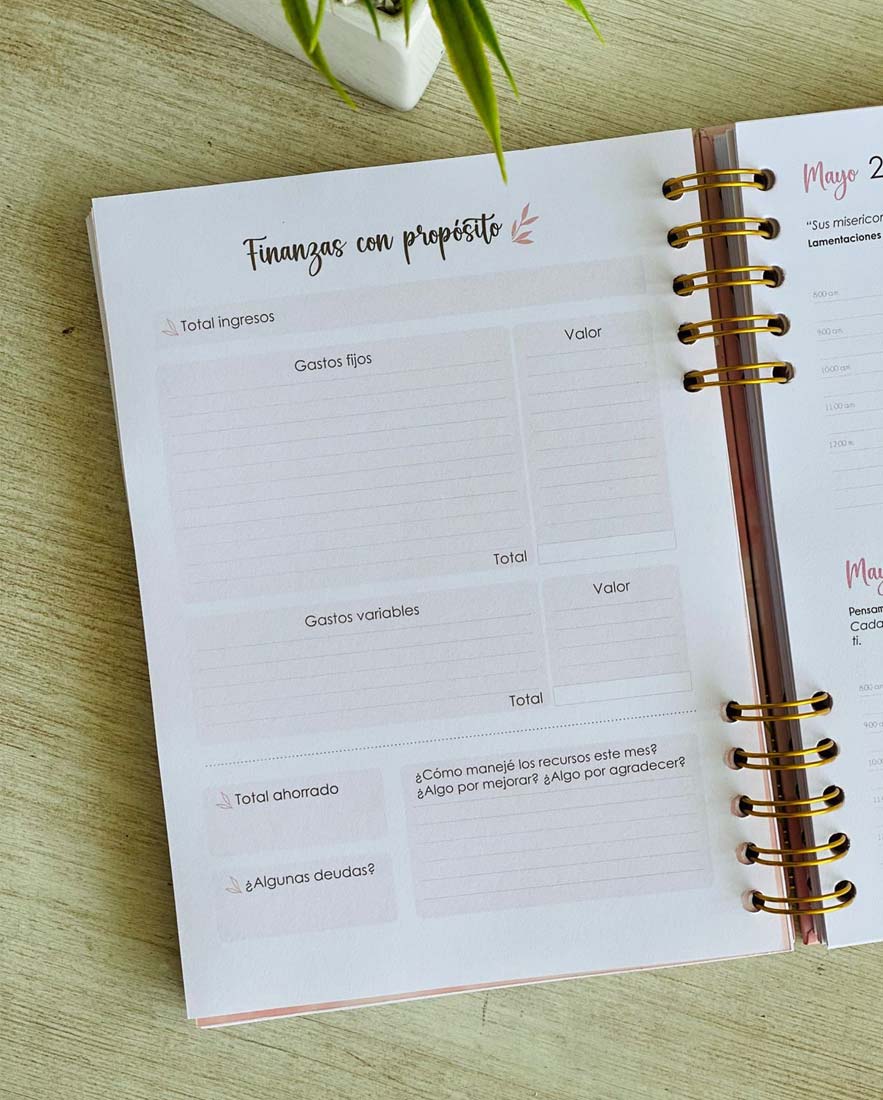 Finanzas con propósito
Total ingresos
Gastos fijos
Valor
Total
Gastos variables
Valor
Total
Total ahorrado
¿Algunas deudas?
¿Cómo manejé los recursos este mes?
¿Algo por mejorar? ¿Algo por agradecer?
Mayo 2
“Sus
Lamentaciones
8:00 am
9:00 am
10:00 am
11:00 am
12:00 m
Cada
ti.
8:00 am